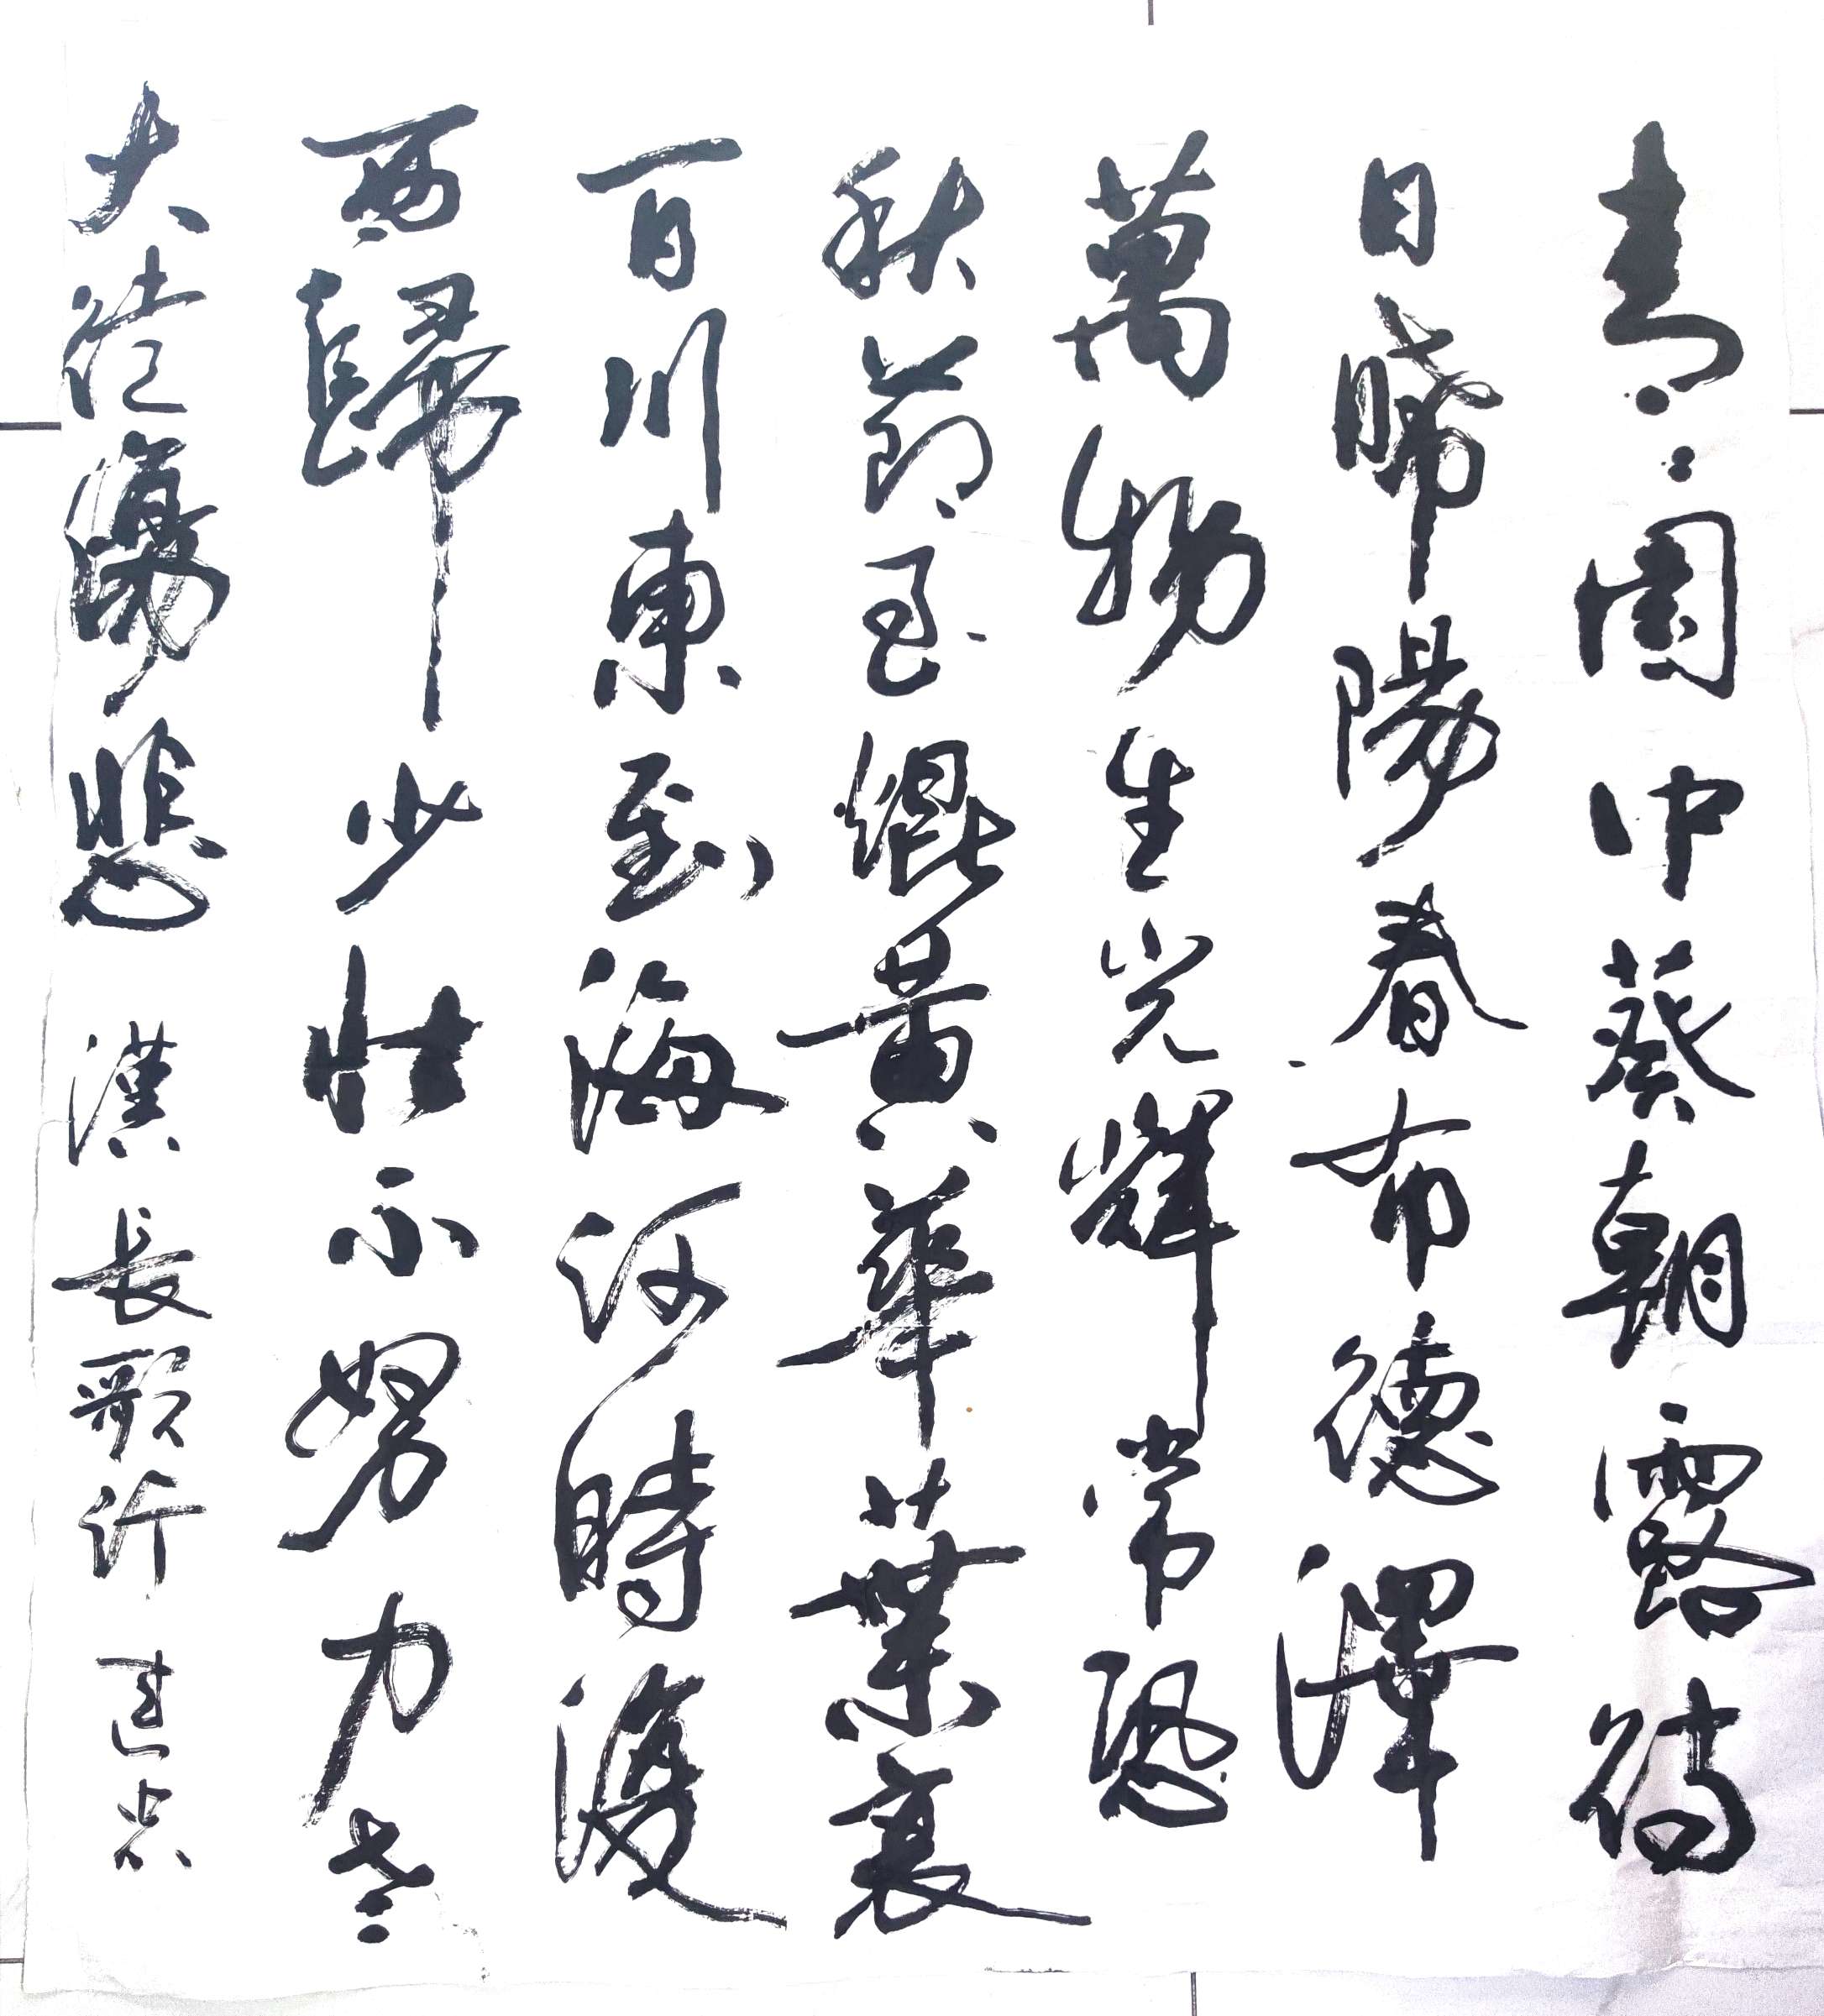 青〻園中葵朝露待
日晞陽春布德澤
萬物生光輝常恐
秋節至焜黃華葉衰
百川東到海何時復
西歸少壯不努力老
大徒傷悲 漢長歌行